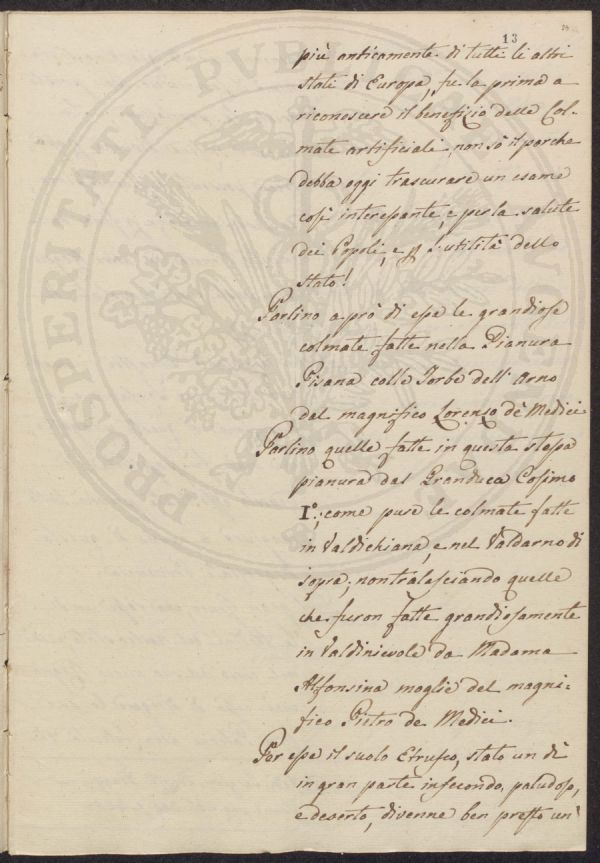 13
più anticamente di tutti li altri
stati di Europa, fu la prima a
riconoscere il benefizio delle Col-
mate artificiali, non sò il perche
debba oggi trascurare un esame
così interessante, e per la salute
dei Popoli, e p l'utilità dello
stato!
Parlino a prò di esse le grandiose
colmate fatte nella Pianura
Pisana colle Torbe dell'Arno
dal magnifico Lorenzo dè Medici.
Parlino quelle fatte in questa stessa
pianura dal Granduca Cosimo
I°; come pure le colmate fatte
in Valdichiana, e nel Valdarno di
sopra; non tralasciando quelle
che furon fatte grandiosamente
in Valdinievole da Madama
Alfonsina moglie del magni-
fico Pietro de Medici.
Per esse il suolo Etrusco, stato un dì
in gran parte infecondo, paludoso,
e deserto, divenne ben presto un
PROSPERITATI PVBLICAE